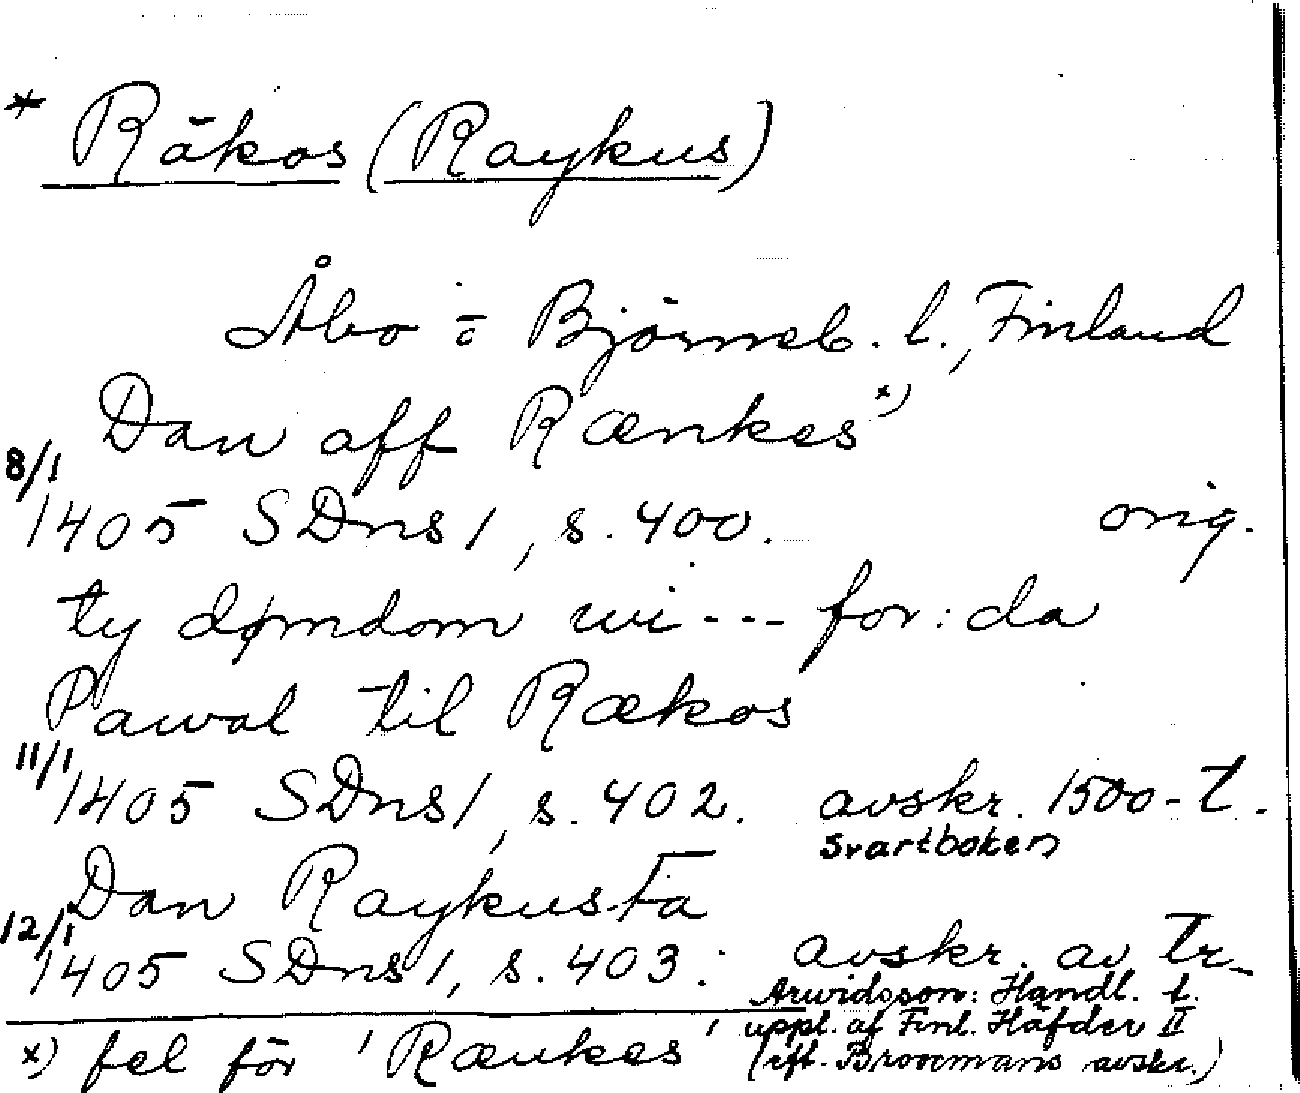 * Räkos (Raykus)
Åbo = Björneb. l., Finland
Dan aff Rænkes x)
8/1 1405 SDns 1, s. 400. orig.
ty dømdom wi --- for: da
Pawal til Rækos
11/1 1405 SDns 1, s. 402. avskr. 1500-t.
Svartboken
Dan Raykusta
12/1 1405 SDns 1, s. 403. avskr. av tr.
Arwidsson: Handl. t.
uppl. af Finl. Häfder II
(eft. Broocmans avskr.)
x) fel för 'Ræukes'